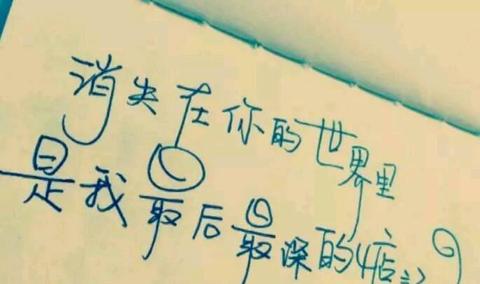 消失在你的世界里
是我最后最深的情话